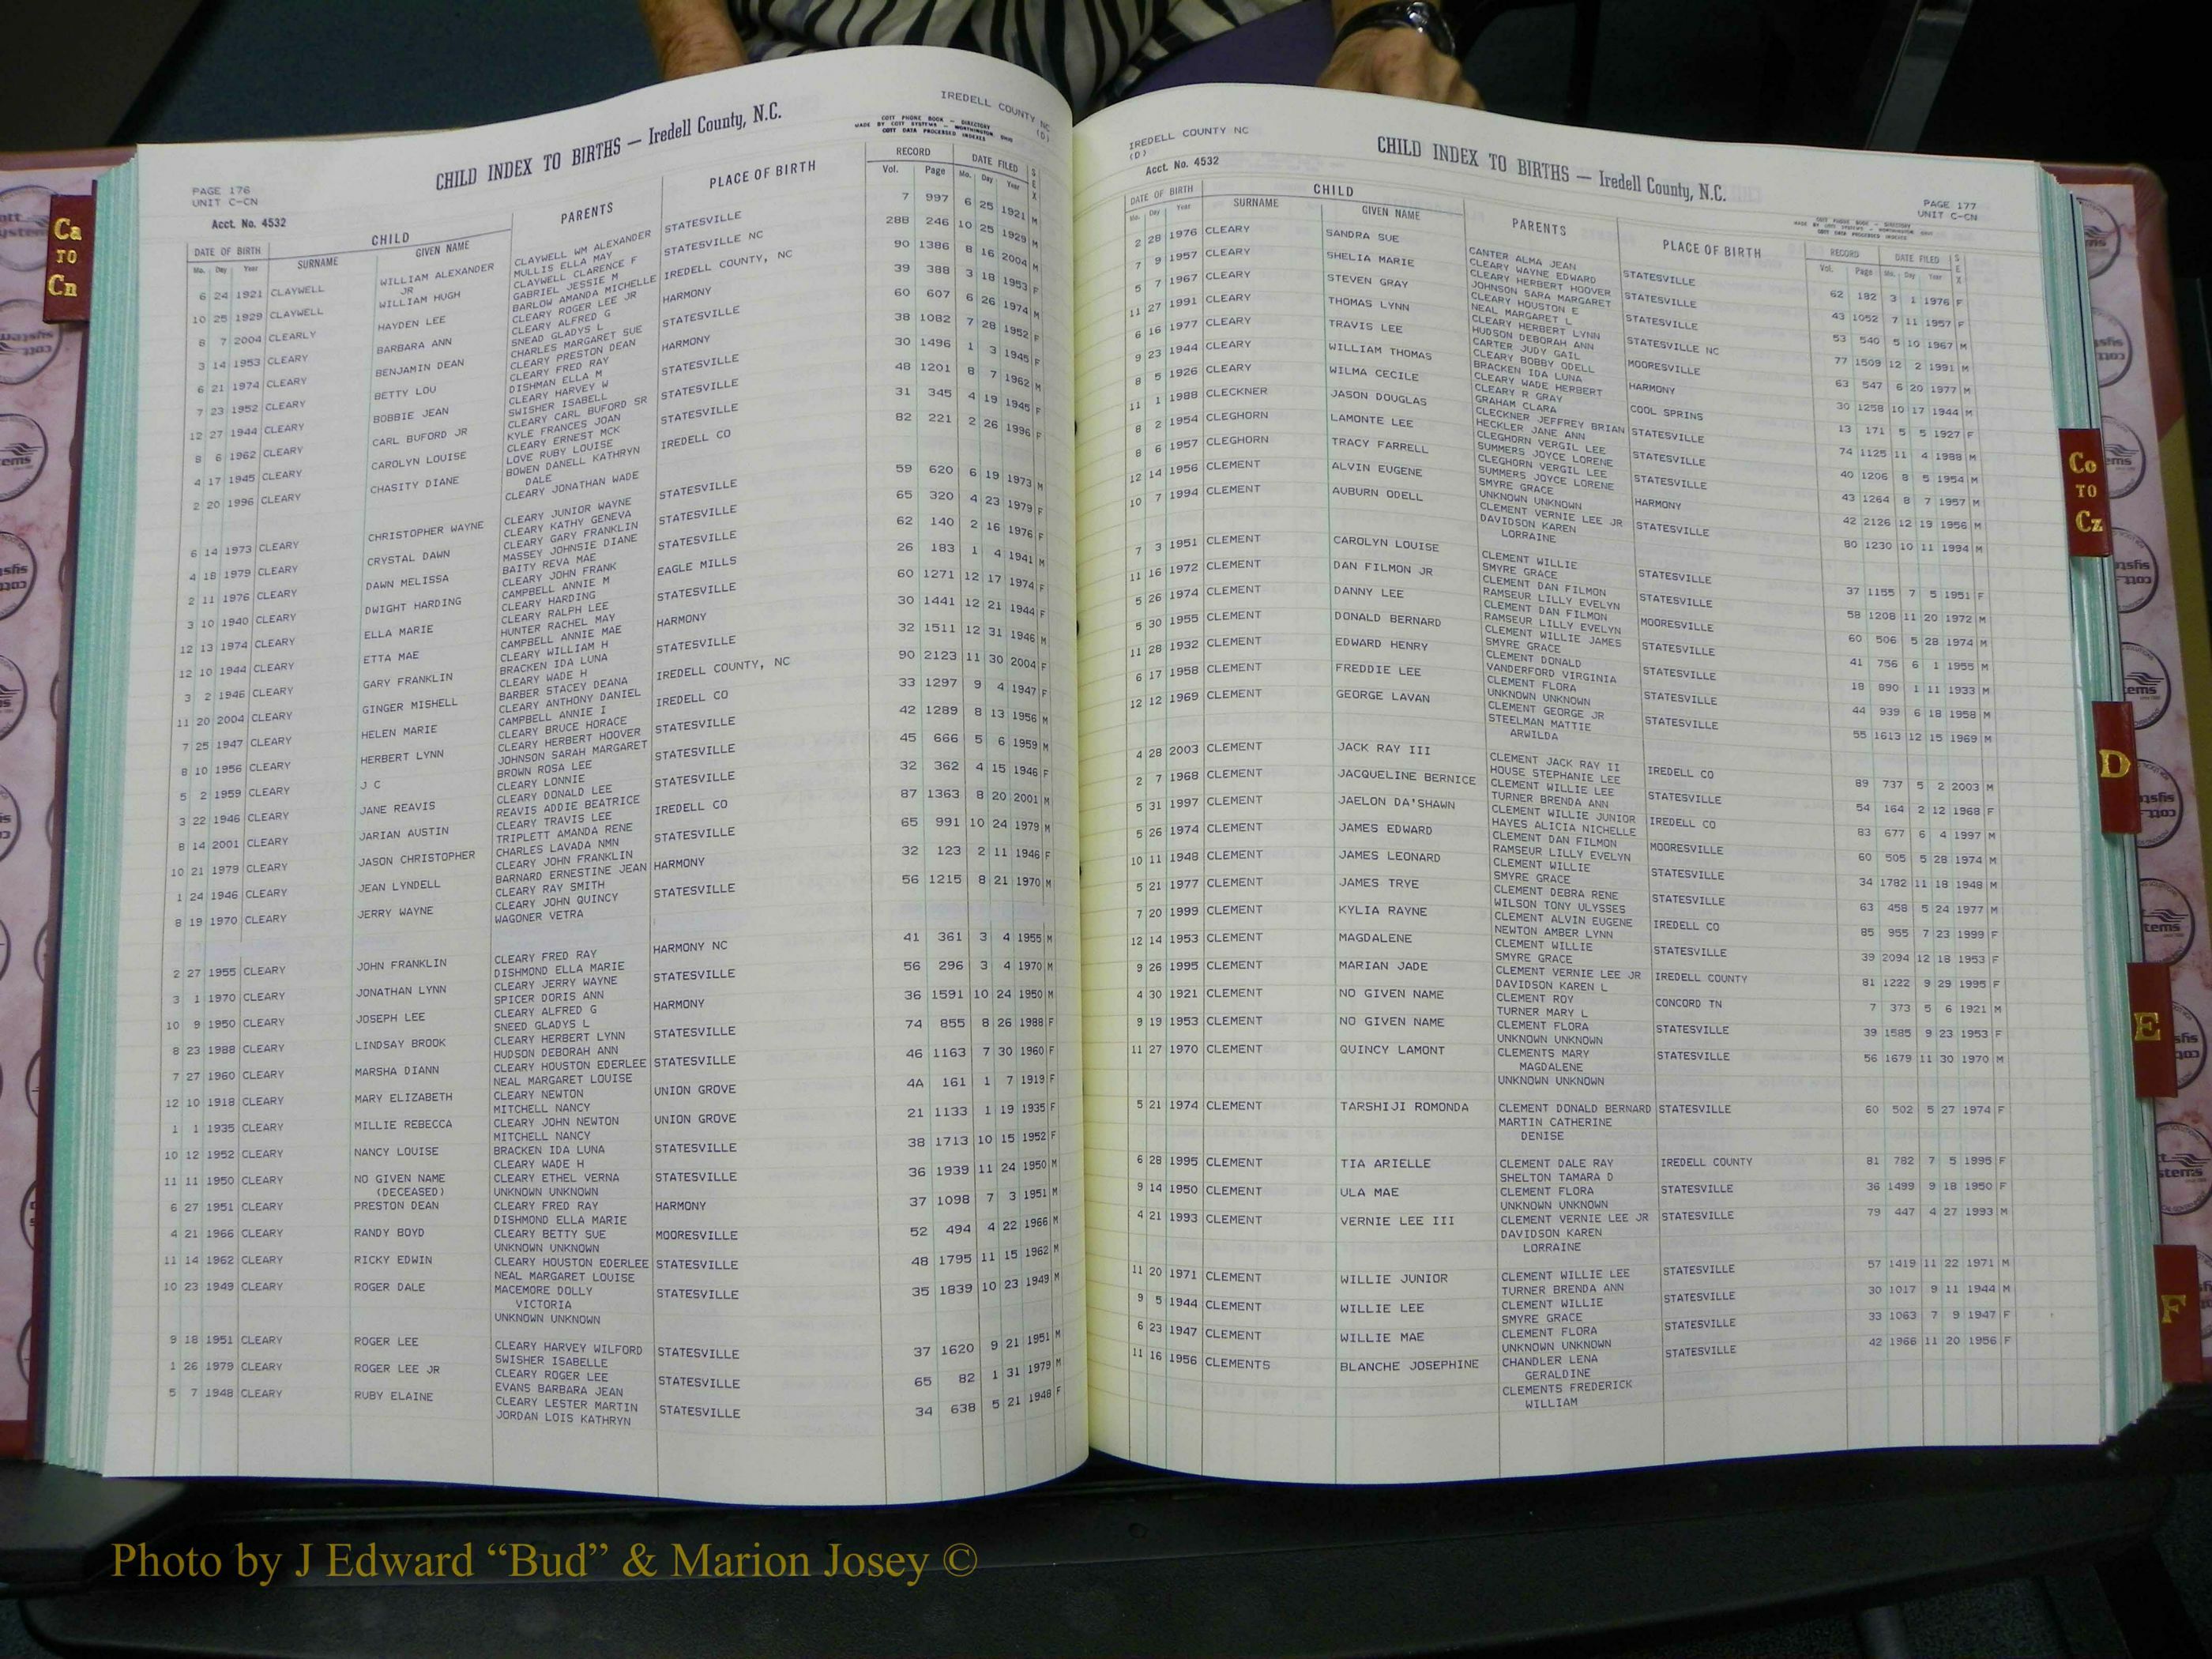 IREDELL COUNTY NC
(D)
COTT PHONE BOOK — DIRECTORY
MADE BY COTT SYSTEMS — WORTHINGTON, OHIO
COTT DATA PROCESSED INDEXES
CHILD INDEX TO BIRTHS — Iredell County, N.C.
PAGE 176
UNIT C-CN
Acct. No. 4532
DATE OF BIRTH CHILD PARENTS PLACE OF BIRTH RECORD DATE FILED SEX
Mo. Day Year SURNAME GIVEN NAME Vol. Page Mo. Day Year
6 24 1921 CLAYWELL WILLIAM ALEXANDER CLAYWELL WM ALEXANDER STATESVILLE 7 997 6 25 1921 M
JR MULLIS ELLA MAY
10 25 1929 CLAYWELL WILLIAM HUGH CLAYWELL CLARENCE F STATESVILLE NC 288 246 10 25 1929 M
GABRIEL JESSIE M
8 7 2004 CLEARLY HAYDEN LEE BARLOW AMANDA MICHELLE IREDELL COUNTY, NC 90 1386 8 16 2004 M
CLEARY ROGER LEE JR
3 14 1953 CLEARY BARBARA ANN CLEARY ALFRED G HARMONY 39 388 3 18 1953 F
SNEAD GLADYS L
6 21 1974 CLEARY BENJAMIN DEAN CHARLES MARGARET SUE STATESVILLE 60 607 6 26 1974 M
CLEARY PRESTON DEAN
7 23 1952 CLEARY BETTY LOU CLEARY FRED RAY HARMONY 38 1082 7 28 1952 F
DISHMAN ELLA M
12 27 1944 CLEARY BOBBIE JEAN CLEARY HARVEY W STATESVILLE 30 1496 1 3 1945 F
SWISHER ISABELL
8 6 1962 CLEARY CARL BUFORD JR CLEARY CARL BUFORD SR STATESVILLE 48 1201 8 7 1962 M
KYLE FRANCES JOAN
4 17 1945 CLEARY CAROLYN LOUISE CLEARY ERNEST MCK STATESVILLE 31 345 4 19 1945 F
LOVE RUBY LOUISE
2 20 1996 CLEARY CHASITY DIANE BOWEN DANELL KATHRYN IREDELL CO 82 221 2 26 1996 F
DALE
CLEARY JONATHAN WADE
6 14 1973 CLEARY CHRISTOPHER WAYNE CLEARY JUNIOR WAYNE STATESVILLE 59 620 6 19 1973 M
CLEARY KATHY GENEVA
4 18 1979 CLEARY CRYSTAL DAWN CLEARY GARY FRANKLIN STATESVILLE 65 320 4 23 1979 F
MASSEY JOHNSIE DIANE
2 11 1976 CLEARY DAWN MELISSA BAITY REVA MAE STATESVILLE 62 140 2 16 1976 F
CLEARY JOHN FRANK
3 10 1940 CLEARY DWIGHT HARDING CAMPBELL ANNIE M EAGLE MILLS 26 183 1 4 1941 M
CLEARY HARDING
12 13 1974 CLEARY ELLA MARIE CLEARY RALPH LEE STATESVILLE 60 1271 12 17 1974 F
HUNTER RACHEL MAY
12 10 1944 CLEARY ETTA MAE CAMPBELL ANNIE MAE HARMONY 30 1441 12 21 1944 F
CLEARY WILLIAM H
3 2 1946 CLEARY GARY FRANKLIN BRACKEN IDA LUNA STATESVILLE 32 1511 12 31 1946 M
CLEARY WADE H
11 20 2004 CLEARY GINGER MISHELL BARBER STACEY DEANA IREDELL COUNTY, NC 90 2123 11 30 2004 F
CLEARY ANTHONY DANIEL
7 25 1947 CLEARY HELEN MARIE CAMPBELL ANNIE I IREDELL CO 33 1297 9 4 1947 F
CLEARY BRUCE HORACE
8 10 1956 CLEARY HERBERT LYNN CLEARY HERBERT HOOVER STATESVILLE 42 1289 8 13 1956 M
JOHNSON SARAH MARGARET
5 2 1959 CLEARY J C BROWN ROSA LEE STATESVILLE 45 666 5 6 1959 M
CLEARY LONNIE
3 22 1946 CLEARY JANE REAVIS CLEARY DONALD LEE STATESVILLE 32 362 4 15 1946 F
REAVIS ADDIE BEATRICE
8 14 2001 CLEARY JARIAN AUSTIN CLEARY TRAVIS LEE IREDELL CO 87 1363 8 20 2001 M
TRIPLETT AMANDA RENE
10 21 1979 CLEARY JASON CHRISTOPHER CHARLES LAVADA NMN STATESVILLE 65 991 10 24 1979 M
CLEARY JOHN FRANKLIN
1 24 1946 CLEARY JEAN LYNDELL BARNARD ERNESTINE JEAN HARMONY 32 123 2 11 1946 F
CLEARY RAY SMITH
8 19 1970 CLEARY JERRY WAYNE CLEARY JOHN QUINCY STATESVILLE 56 1215 8 21 1970 M
WAGONER VETRA
2 27 1955 CLEARY JOHN FRANKLIN CLEARY FRED RAY HARMONY NC 41 361 3 4 1955 M
DISHMOND ELLA MARIE
3 1 1970 CLEARY JONATHAN LYNN CLEARY JERRY WAYNE STATESVILLE 56 296 3 4 1970 M
SPICER DORIS ANN
10 9 1950 CLEARY JOSEPH LEE CLEARY ALFRED G HARMONY 36 1591 10 24 1950 M
SNEED GLADYS L
8 23 1988 CLEARY LINDSAY BROOK CLEARY HERBERT LYNN STATESVILLE 74 855 8 26 1988 F
HUDSON DEBORAH ANN
7 27 1960 CLEARY MARSHA DIANN CLEARY HOUSTON EDERLEE STATESVILLE 46 1163 7 30 1960 F
NEAL MARGARET LOUISE
12 10 1918 CLEARY MARY ELIZABETH CLEARY NEWTON UNION GROVE 4A 161 1 7 1919 F
MITCHELL NANCY
1 1 1935 CLEARY MILLIE REBECCA CLEARY JOHN NEWTON UNION GROVE 21 1133 1 19 1935 F
MITCHELL NANCY
10 12 1952 CLEARY NANCY LOUISE BRACKEN IDA LUNA STATESVILLE 38 1713 10 15 1952 F
CLEARY WADE H
11 11 1950 CLEARY NO GIVEN NAME CLEARY ETHEL VERNA STATESVILLE 36 1939 11 24 1950 M
(DECEASED) UNKNOWN UNKNOWN
6 27 1951 CLEARY PRESTON DEAN CLEARY FRED RAY HARMONY 37 1098 7 3 1951 M
DISHMOND ELLA MARIE
4 21 1966 CLEARY RANDY BOYD CLEARY BETTY SUE MOORESVILLE 52 494 4 22 1966 M
UNKNOWN UNKNOWN
11 14 1962 CLEARY RICKY EDWIN CLEARY HOUSTON EDERLEE STATESVILLE 48 1795 11 15 1962 M
NEAL MARGARET LOUISE
10 23 1949 CLEARY ROGER DALE MACEMORE DOLLY STATESVILLE 35 1839 10 23 1949 M
VICTORIA
UNKNOWN UNKNOWN
9 18 1951 CLEARY ROGER LEE CLEARY HARVEY WILFORD STATESVILLE 37 1620 9 21 1951 M
SWISHER ISABELLE
1 26 1979 CLEARY ROGER LEE JR CLEARY ROGER LEE STATESVILLE 65 82 1 31 1979 M
EVANS BARBARA JEAN
5 7 1948 CLEARY RUBY ELAINE CLEARY LESTER MARTIN STATESVILLE 34 638 5 21 1948 F
JORDAN LOIS KATHRYN
IREDELL COUNTY NC
(D)
Acct. No. 4532
CHILD INDEX TO BIRTHS — Iredell County, N.C.
PAGE 177
UNIT C-CN
COTT PHONE BOOK — DIRECTORY
MADE BY COTT SYSTEMS — WORTHINGTON, OHIO
COTT DATA PROCESSED INDEXES
DATE OF BIRTH CHILD PARENTS PLACE OF BIRTH RECORD DATE FILED SEX
Mo. Day Year SURNAME GIVEN NAME Vol. Page Mo. Day Year
2 28 1976 CLEARY SANDRA SUE CANTER ALMA JEAN STATESVILLE 62 182 3 1 1976 F
CLEARY WAYNE EDWARD
7 9 1957 CLEARY SHELIA MARIE CLEARY HERBERT HOOVER STATESVILLE 43 1052 7 11 1957 F
JOHNSON SARA MARGARET
5 7 1967 CLEARY STEVEN GRAY CLEARY HOUSTON E STATESVILLE 53 540 5 10 1967 M
NEAL MARGARET L
11 27 1991 CLEARY THOMAS LYNN CLEARY HERBERT LYNN STATESVILLE NC 77 1509 12 2 1991 M
HUDSON DEBORAH ANN
6 16 1977 CLEARY TRAVIS LEE CARTER JUDY GAIL MOORESVILLE 63 547 6 20 1977 M
CLEARY BOBBY ODELL
9 23 1944 CLEARY WILLIAM THOMAS BRACKEN IDA LUNA HARMONY 30 1258 10 17 1944 M
CLEARY WADE HERBERT
8 5 1926 CLEARY WILMA CECILE CLEARY R GRAY COOL SPRINS 13 171 5 5 1927 F
GRAHAM CLARA
11 1 1988 CLECKNER JASON DOUGLAS CLECKNER JEFFREY BRIAN STATESVILLE 74 1125 11 4 1988 M
HECKLER JANE ANN
8 2 1954 CLEGHORN LAMONTE LEE CLEGHORN VERGIL LEE STATESVILLE 40 1206 8 5 1954 M
SUMMERS JOYCE LORENE
8 6 1957 CLEGHORN TRACY FARRELL CLEGHORN VERGIL LEE STATESVILLE 43 1264 8 7 1957 M
SUMMERS JOYCE LORENE
12 14 1956 CLEMENT ALVIN EUGENE SMYRE GRACE HARMONY 42 2126 12 19 1956 M
UNKNOWN UNKNOWN
10 7 1994 CLEMENT AUBURN ODELL CLEMENT VERNIE LEE JR STATESVILLE 80 1230 10 11 1994 M
DAVIDSON KAREN
LORRAINE
7 3 1951 CLEMENT CAROLYN LOUISE CLEMENT WILLIE STATESVILLE 37 1155 7 5 1951 F
SMYRE GRACE
11 16 1972 CLEMENT DAN FILMON JR CLEMENT DAN FILMON STATESVILLE 58 1208 11 20 1972 M
RAMSEUR LILLY EVELYN
5 26 1974 CLEMENT DANNY LEE CLEMENT DAN FILMON MOORESVILLE 60 506 5 28 1974 M
RAMSEUR LILLY EVELYN
5 30 1955 CLEMENT DONALD BERNARD CLEMENT WILLIE JAMES STATESVILLE 41 756 6 1 1955 M
SMYRE GRACE
11 28 1932 CLEMENT EDWARD HENRY CLEMENT DONALD STATESVILLE 18 890 1 11 1933 M
VANDERFORD VIRGINIA
6 17 1958 CLEMENT FREDDIE LEE CLEMENT FLORA STATESVILLE 44 939 6 18 1958 M
UNKNOWN UNKNOWN
12 12 1969 CLEMENT GEORGE LAVAN CLEMENT GEORGE JR STATESVILLE 55 1613 12 15 1969 M
STEELMAN MATTIE
ARWILDA
4 28 2003 CLEMENT JACK RAY III CLEMENT JACK RAY II IREDELL CO 89 737 5 2 2003 M
HOUSE STEPHANIE LEE
2 7 1968 CLEMENT JACQUELINE BERNICE CLEMENT WILLIE LEE STATESVILLE 54 164 2 12 1968 F
TURNER BRENDA ANN
5 31 1997 CLEMENT JAELON DA'SHAWN CLEMENT WILLIE JUNIOR IREDELL CO 83 677 6 4 1997 M
HAYES ALICIA NICHELLE
5 26 1974 CLEMENT JAMES EDWARD CLEMENT DAN FILMON MOORESVILLE 60 505 5 28 1974 M
RAMSEUR LILLY EVELYN
10 11 1948 CLEMENT JAMES LEONARD CLEMENT WILLIE STATESVILLE 34 1782 11 18 1948 M
SMYRE GRACE
5 21 1977 CLEMENT JAMES TRYE CLEMENT DEBRA RENE STATESVILLE 63 458 5 24 1977 M
WILSON TONY ULYSSES
7 20 1999 CLEMENT KYLIA RAYNE CLEMENT ALVIN EUGENE IREDELL CO 85 955 7 23 1999 F
NEWTON AMBER LYNN
12 14 1953 CLEMENT MAGDALENE CLEMENT WILLIE STATESVILLE 39 2094 12 18 1953 F
SMYRE GRACE
9 26 1995 CLEMENT MARIAN JADE CLEMENT VERNIE LEE JR IREDELL COUNTY 81 1222 9 29 1995 F
DAVIDSON KAREN L
4 30 1921 CLEMENT NO GIVEN NAME CLEMENT ROY CONCORD TN 7 373 5 6 1921 M
TURNER MARY L
9 19 1953 CLEMENT NO GIVEN NAME CLEMENT FLORA STATESVILLE 39 1585 9 23 1953 F
UNKNOWN UNKNOWN
11 27 1970 CLEMENT QUINCY LAMONT CLEMENTS MARY STATESVILLE 56 1679 11 30 1970 M
MAGDALENE
UNKNOWN UNKNOWN
5 21 1974 CLEMENT TARSHIJI ROMONDA CLEMENT DONALD BERNARD STATESVILLE 60 502 5 27 1974 F
MARTIN CATHERINE
DENISE
6 28 1995 CLEMENT TIA ARIELLE CLEMENT DALE RAY IREDELL COUNTY 81 782 7 5 1995 F
SHELTON TAMARA D
9 14 1950 CLEMENT ULA MAE CLEMENT FLORA STATESVILLE 36 1499 9 18 1950 F
UNKNOWN UNKNOWN
4 21 1993 CLEMENT VERNIE LEE III CLEMENT VERNIE LEE JR STATESVILLE 79 447 4 27 1993 M
DAVIDSON KAREN
LORRAINE
11 20 1971 CLEMENT WILLIE JUNIOR CLEMENT WILLIE LEE STATESVILLE 57 1419 11 22 1971 M
TURNER BRENDA ANN
9 5 1944 CLEMENT WILLIE LEE CLEMENT WILLIE STATESVILLE 30 1017 9 11 1944 M
SMYRE GRACE
6 23 1947 CLEMENT WILLIE MAE CLEMENT FLORA STATESVILLE 33 1063 7 9 1947 F
UNKNOWN UNKNOWN
11 16 1956 CLEMENTS BLANCHE JOSEPHINE CHANDLER LENA STATESVILLE 42 1966 11 20 1956 F
GERALDINE
CLEMENTS FREDERICK
WILLIAM
Ca
TO
Cn
Co
TO
Cz
D
E
F
Photo by J Edward “Bud” & Marion Josey ©